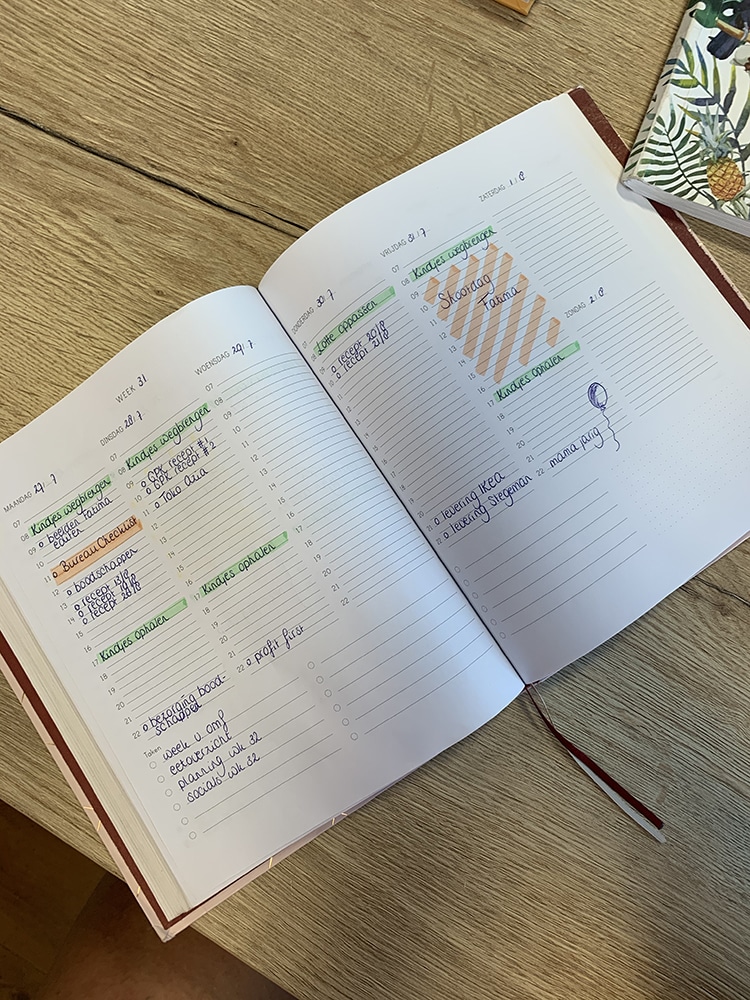 WEEK 31
MAANDAG 27/7
07
08 Kindjes wegbrengen
09 beelden Fatima
10 editen
11 Bureau Checklist
12 boodschappen
13 recept 13/8
14 recept 19/8
15 recept 20/8
16
17 Kindjes ophalen
18
19
20
21
22 bezorging bood-
schappen
Taken
week v. omg
eetoverzicht
planning wk 32
socials wk 32
DINSDAG 28/7
07
08 Kindjes wegbrengen
09 GPK recept #1
10 GPK recept #2
11 Toko Aua
12
13
14
15
16
17 Kindjes ophalen
18
19
20
21
22 profit first
WOENSDAG 29/7
07
08
09
10
11
12
13
14
15
16
17
18
19
20
21
22
DONDERDAG 30/7
07
08 Lotte oppassen
09 recept 20/8
10 recept 21/8
11
12
13
14
15
16
17
18
19
20
21 levering IKEA
22 levering Stegeman
VRIJDAG 31/7
07
08 Kindjes wegbrengen
09
10 Shootdag
11 Fatima
12
13
14
15
16
17 Kindjes ophalen
18
19
20
21
22 mama jarig
ZATERDAG 1/8
ZONDAG 2/8